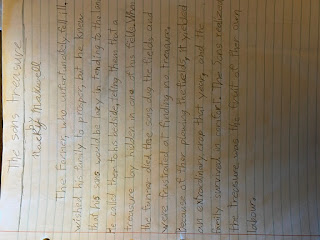 The Sons Treasure
by
Mackyl Maxwell
The Farmer, who unfortunately fell ill,
wished his family to prosper, but he knew
that his sons would be lazy in tending to the land.
He called them to his bedside, telling them that a
treasure lay hidden in one of his fields. When
the farmer died the sons dug the fields and
were frustrated at finding no treasure.
Because of their plowing the fields, it yielded
an extraordinary crop that year, and the
family survived in comfort. The Sons realized
the treasure was the fruit of their own
labour.